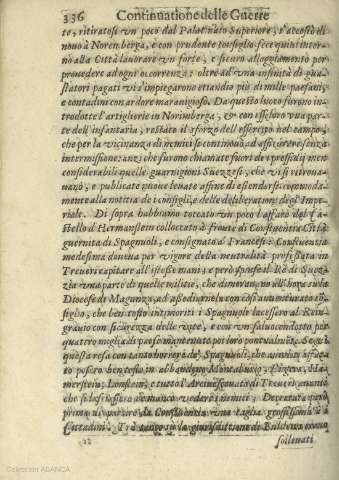 336 Continuatione delle Guerre
to, ritiratosi un poco dal Palatinato Superiore, s'accostò di
nuovo à Norimberga, e con prudente consiglio fece quivi intor-
no alla Città lavorare un forte, e sicuro alloggiamento per
provedere ad ogni occorrenza: oltre ad una infinità di gua-
statori pagati vi s'impiegarono etiandio più di mille paesani,
e contadini con ardore maraviglioso. Da questo luoco furono in-
trodotte l'artiglierie in Norimberga, & con esse loro una par-
te dell'infantaria, restato il sforzo dell'essercito nel campo,
che per la vicinanza di nemici si continuò ad assicurare senza
intermissione: anzi che furono chiamate fuori de' presidij men
considerabili quelle guarnigioni Suezzesi, che vi si ritrova-
vano, e publicate nuove levate affine di estendersi commoda-
mente alla notitia de' consiglij, e delle deliberationi degl'Impe-
riale. Di sopra habbiamo toccato un poco l'affare del Ca-
stello d'Hermanstein collocato à fronte di Confluentia Città
guernita de Spagnuoli, e consignato a' Francesi: Confluentia
medesima doveva per vigore della neutralità professata in
Treveri capitare all'istesse mani; e però spinse il Rè di Suez-
zia una parte di quelle militie, che dimoravano all'hora su la
Diocese di Magunza, ad assediarla; con così aventurato con-
siglio, che ben tosto astrinse gli Spagnuoli lacessero al Rein-
gravio con sicurezza delle vite, e con un salvocondotto per
quattro miglia di paese mantenuto poi loro pontualmente. Segui
questa resa con tanto horrore de' Spagnuoli, che
posero ben tosto in abbandono Montabaur,
merstein, Lonstein, e tutto l'Arcivescovato di Treveri
che
prima di partire da Confluentia una taglia grossissima a'
Cittadini. Trà tanto
sollevati
Colección ABANCA